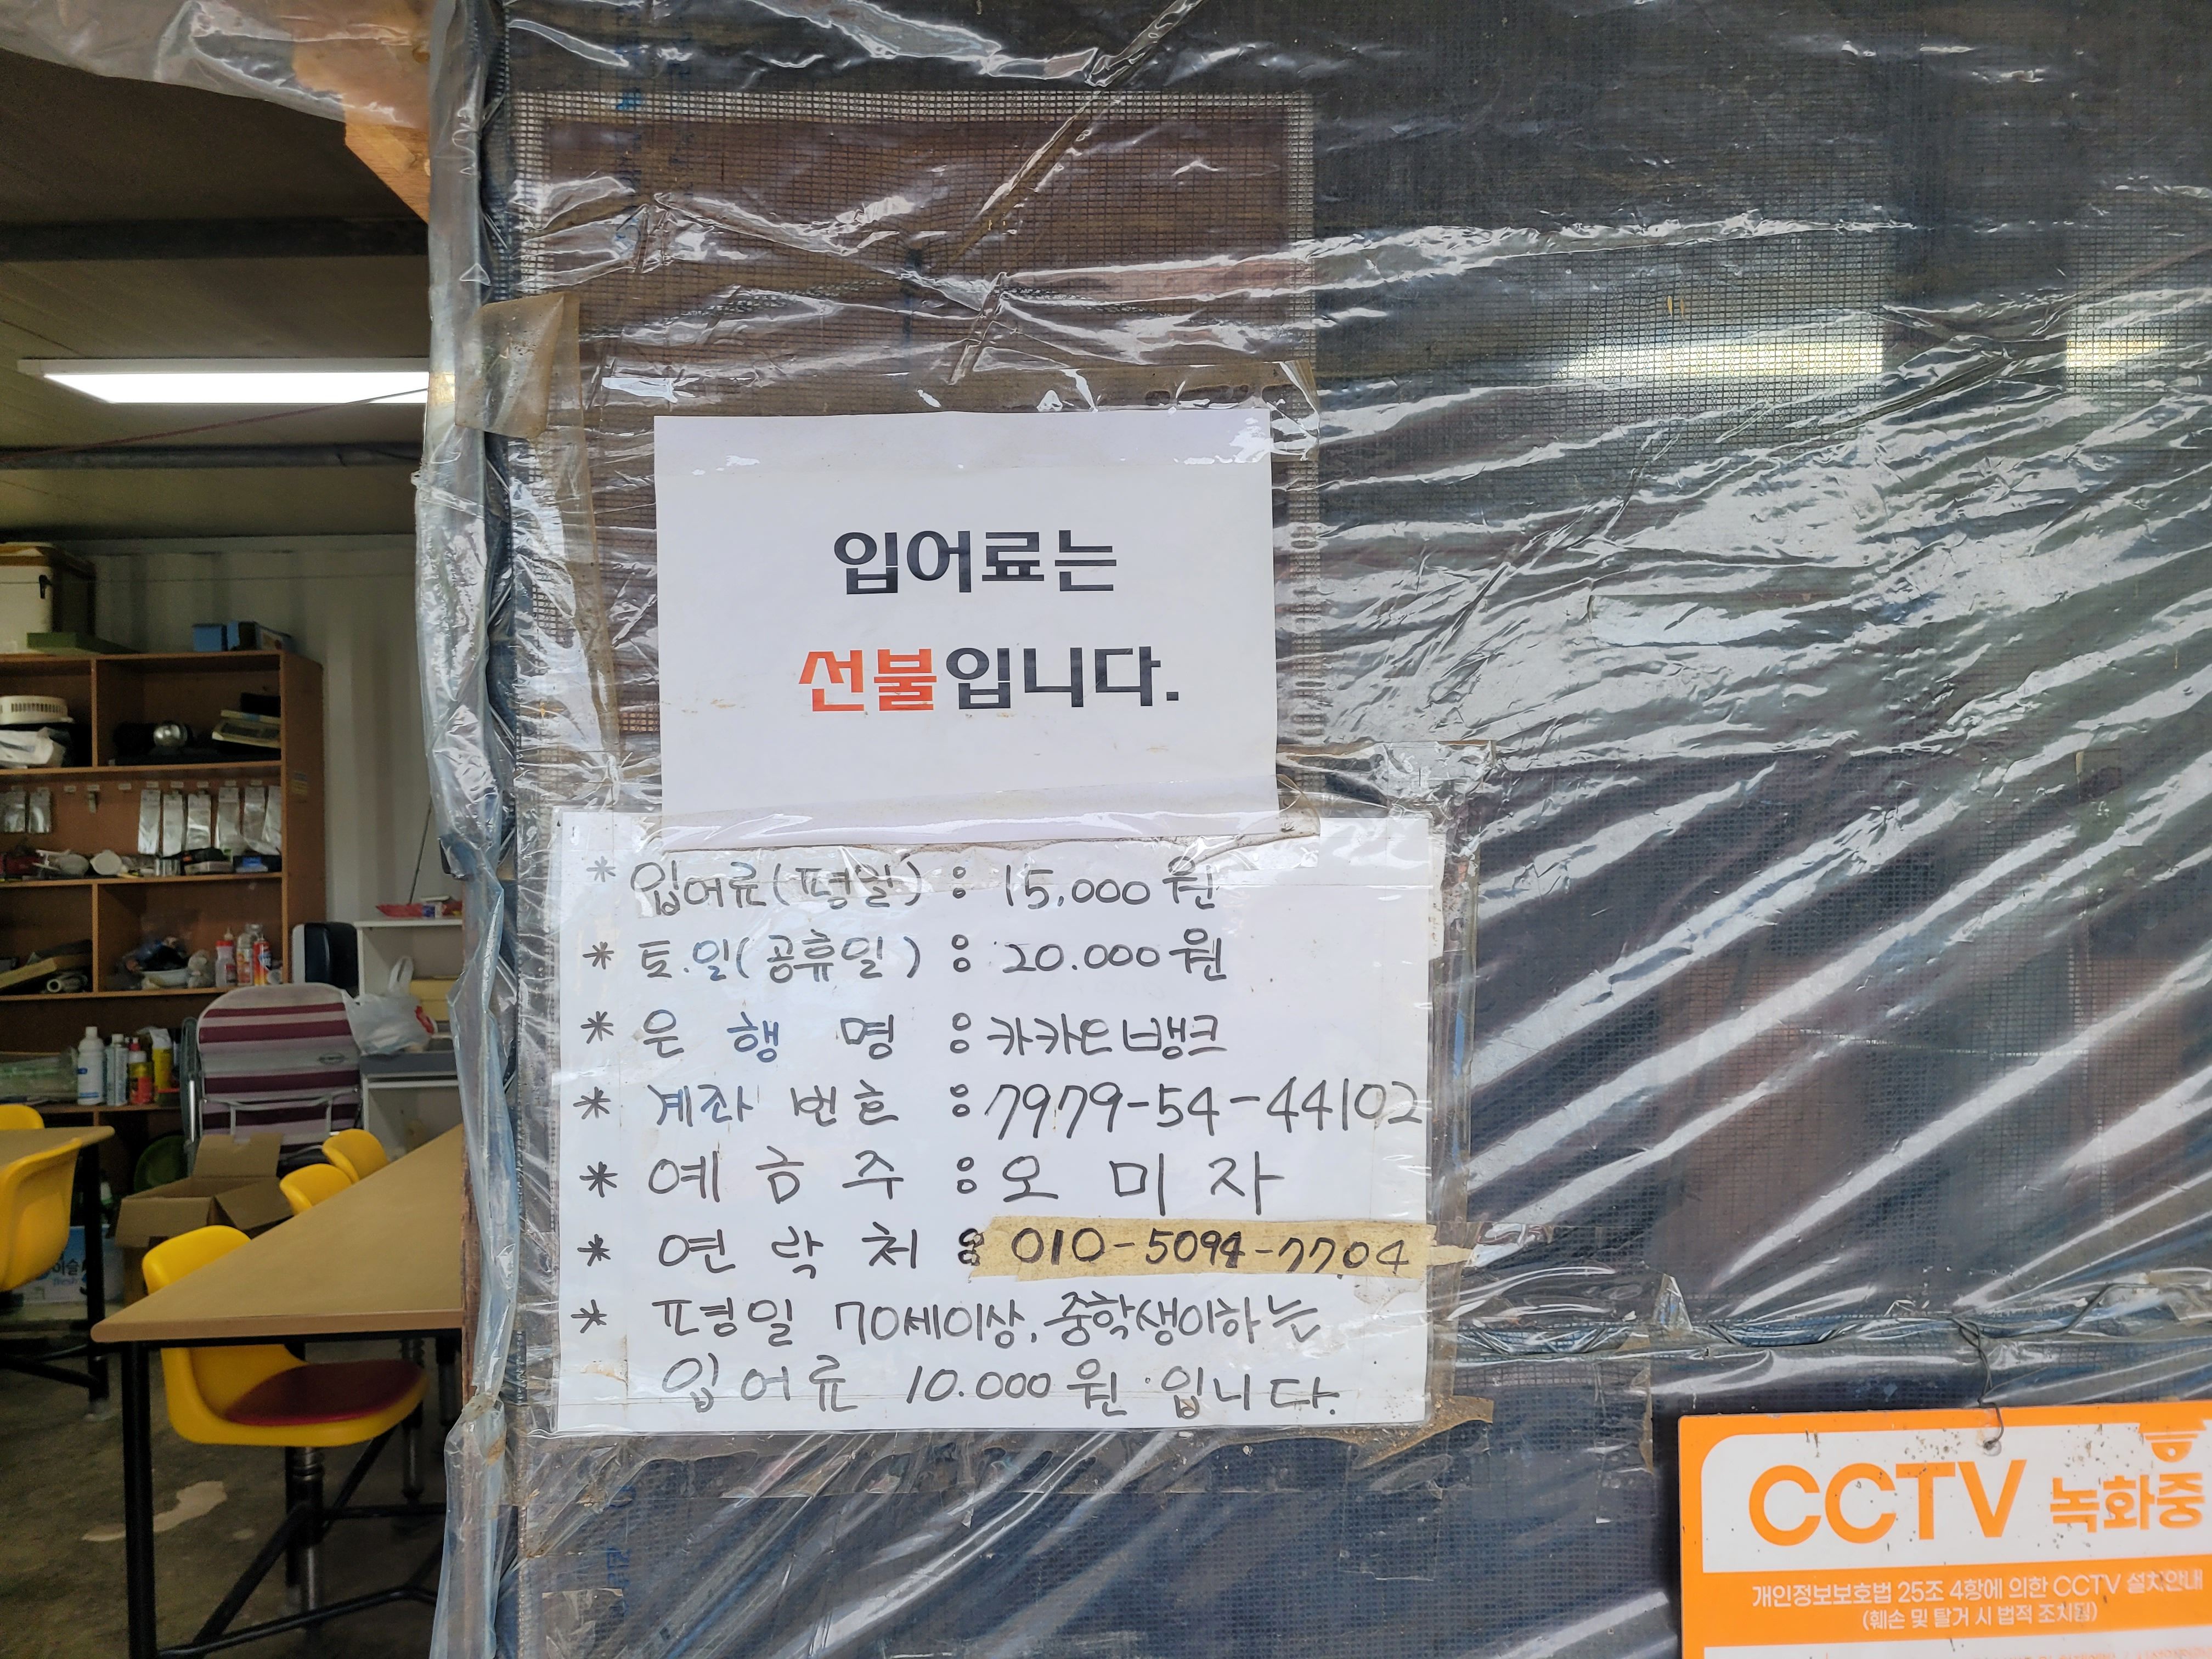 입어료는
선불입니다.
* 입어료(평일) : 15,000원
* 토.일(공휴일) : 20.000원
* 은 행 명 : 카카오뱅크
* 계좌 번호 : 7979-54-44102
* 예 금 주 : 오 미 자
* 연 락 처 : 010-5094-7704
* 평일 70세이상, 중학생이하는
입어료 10.000원 입니다.
CCTV 녹화중
개인정보보호법 25조 4항에 의한 CCTV 설치안내
(훼손 및 탈거 시 법적 조치됨)
이슬
fresh